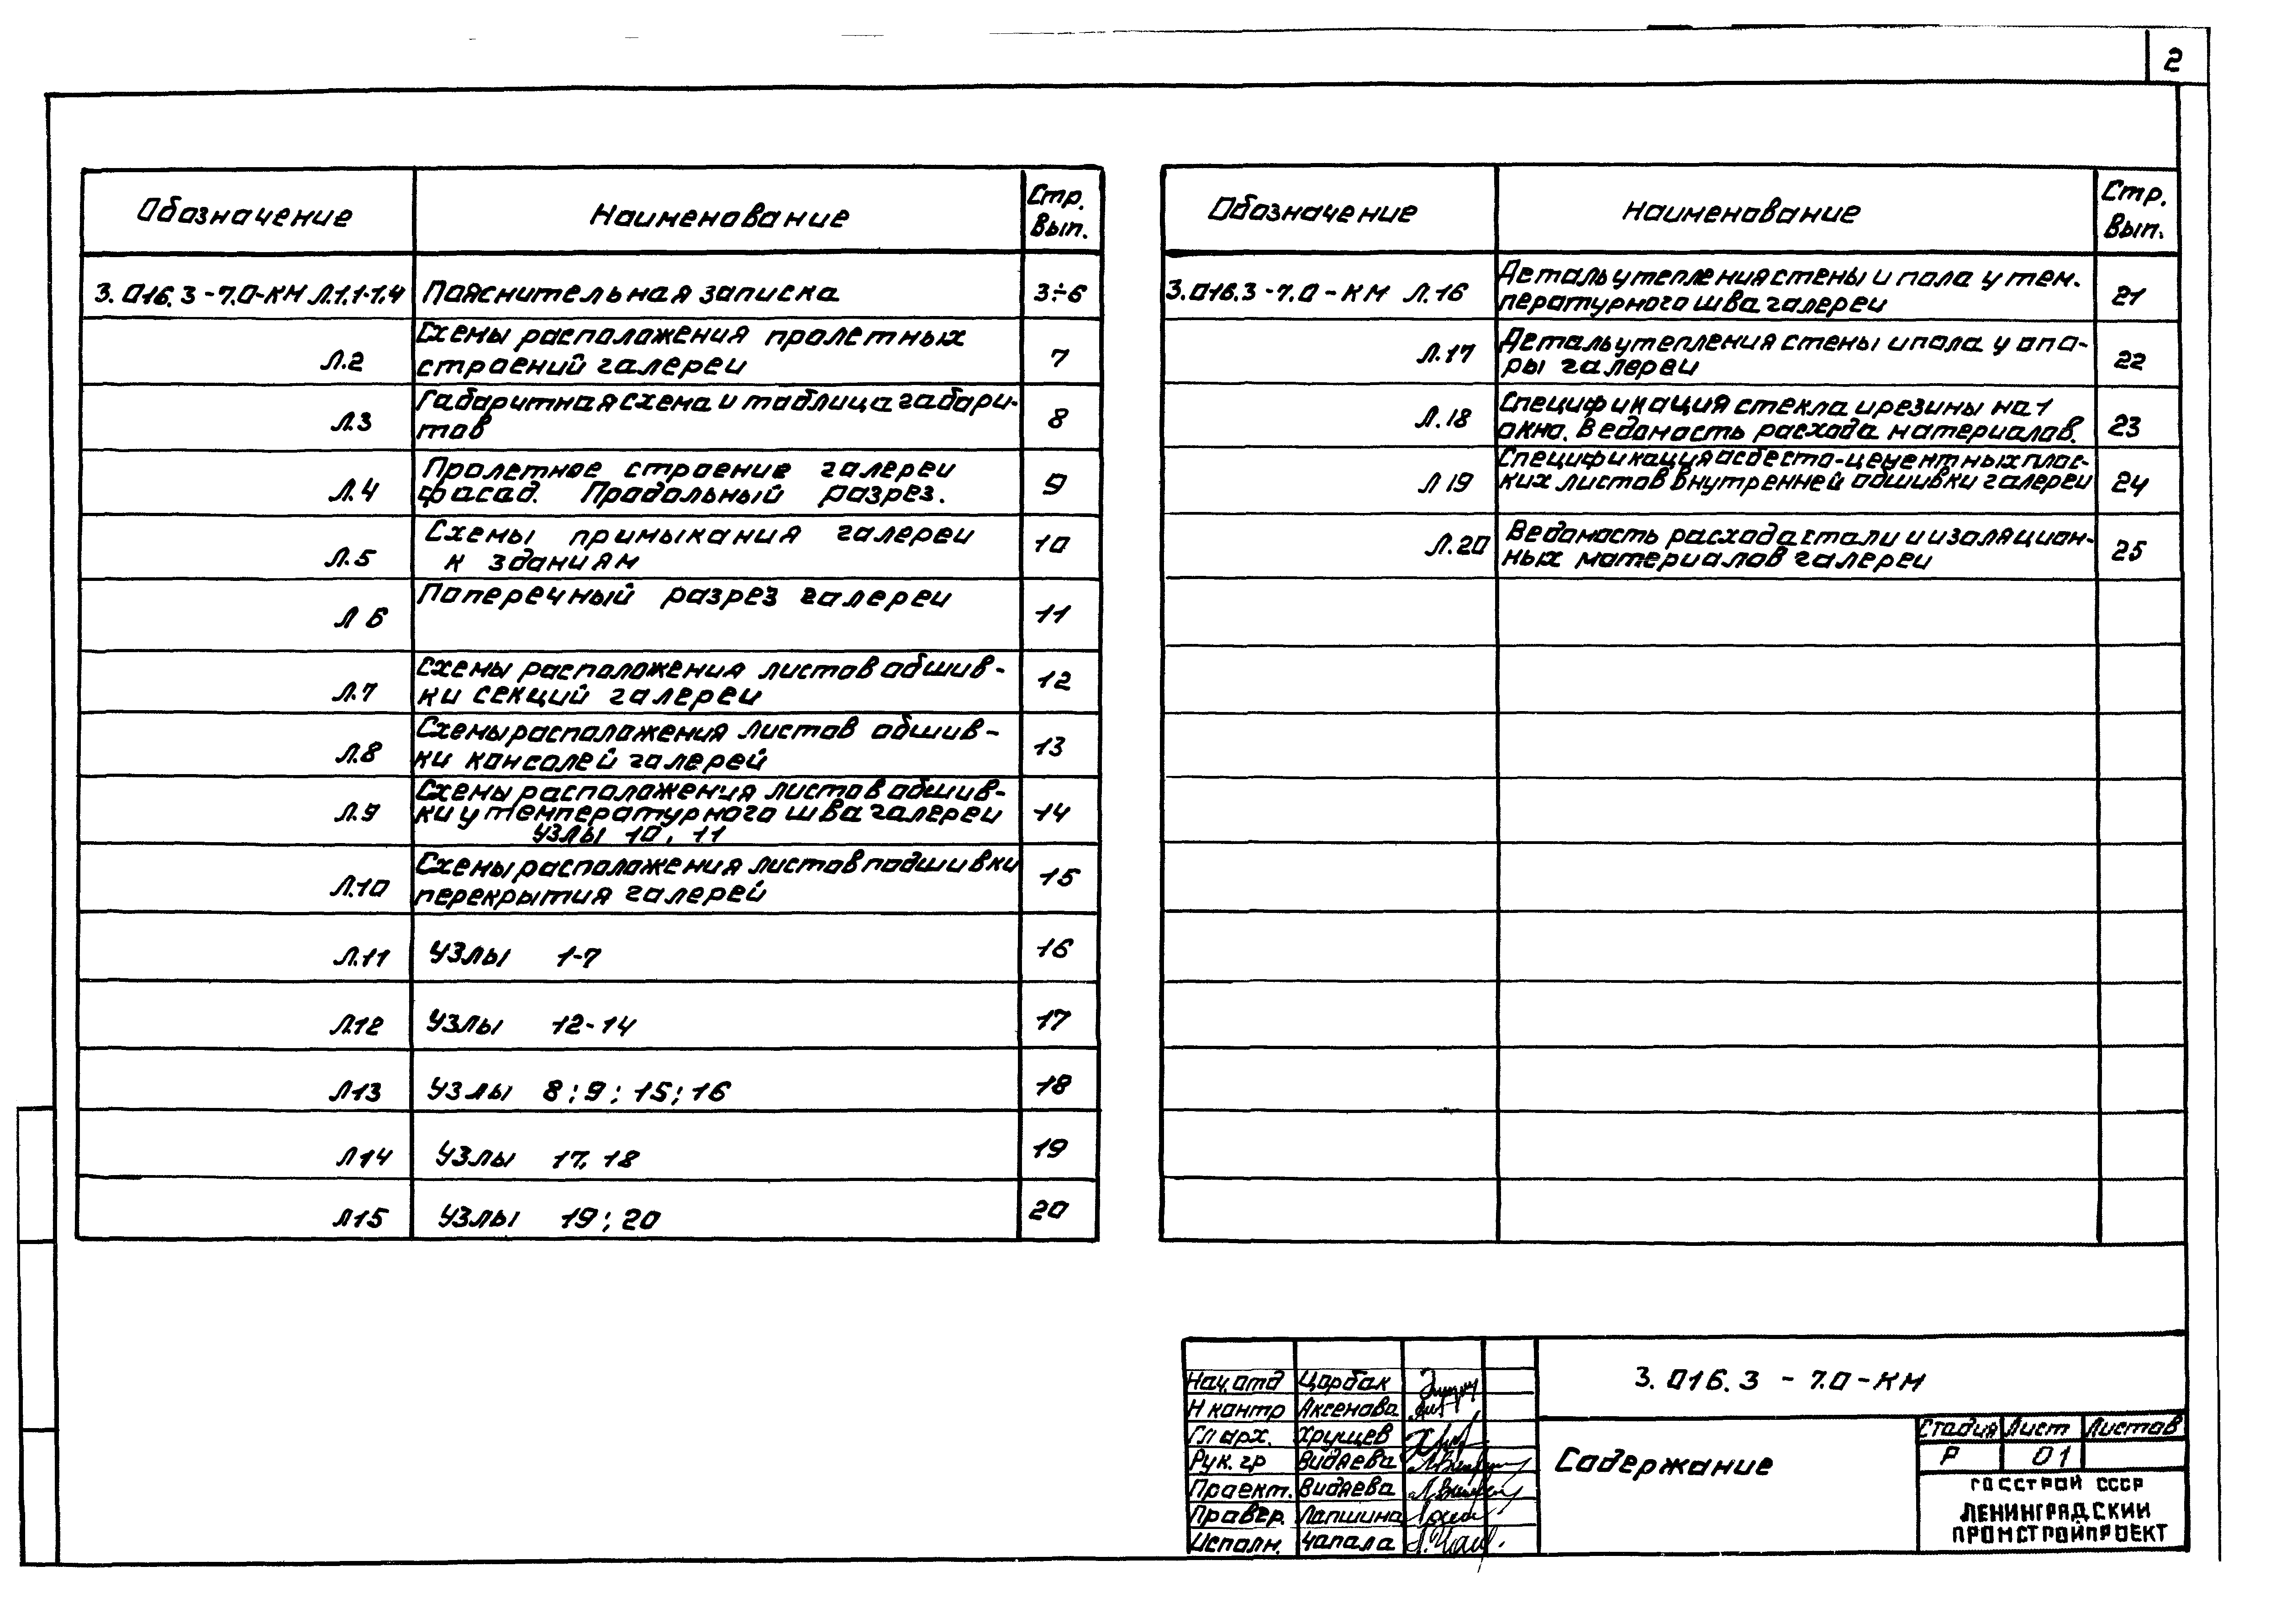 2
Обозначение
Наименование
Стр.
Вып.
3.016.3-7.0-КМ Л.1,1-1,4
Пояснительная записка
3÷6
Л.2
Схемы расположения пролетных
строений галереи
7
Л.3
Габаритная схема и таблица габари-
тов
8
Л.4
Пролетное строение галереи
фасад. Продольный разрез.
9
Л.5
Схемы примыкания галереи
к зданиям
10
Л 6
Поперечный разрез галереи
11
Л.7
Схемы расположения листов обшив-
ки секций галереи
12
Л.8
Схемы расположения листов обшив-
ки консолей галерей
13
Л.9
Схемы расположения листов обшив-
ки у температурного шва галереи
узлы 10, 11
14
Л.10
Схемы расположения листов подшивки
перекрытия галерей
15
Л.11
Узлы 1-7
16
Л.12
Узлы 12-14
17
Л13
Узлы 8; 9; 15; 16
18
Л14
Узлы 17, 18
19
Л15
Узлы 19; 20
20
Обозначение
Наименование
Стр.
Вып.
3.016.3-7.0-КМ Л.16
Деталь утепления стены и пола у тем-
пературного шва галереи
21
Л.17
Деталь утепления стены и пола у опо-
ры галереи
22
Л.18
Спецификация стекла и резины на 1
окно. Ведомость расхода материалов.
23
Л 19
Спецификация асбесто-цементных плос-
ких листов внутренней обшивки галереи
24
Л.20
Ведомость расхода стали и изоляцион-
ных материалов галереи
25
Нач.отд Цорбак
Н контр Аксенова
Гл арх. Хрущев
Рук. гр Видяева
Проект. Видяева
Провер. Лапшина
Исполн. Чапала
3.016.3-7.0-КМ
Содержание
Стадия Лист Листов
Р 01
ГОССТРОЙ СССР
ЛЕНИНГРАДСКИЙ
ПРОМСТРОЙПРОЕКТ